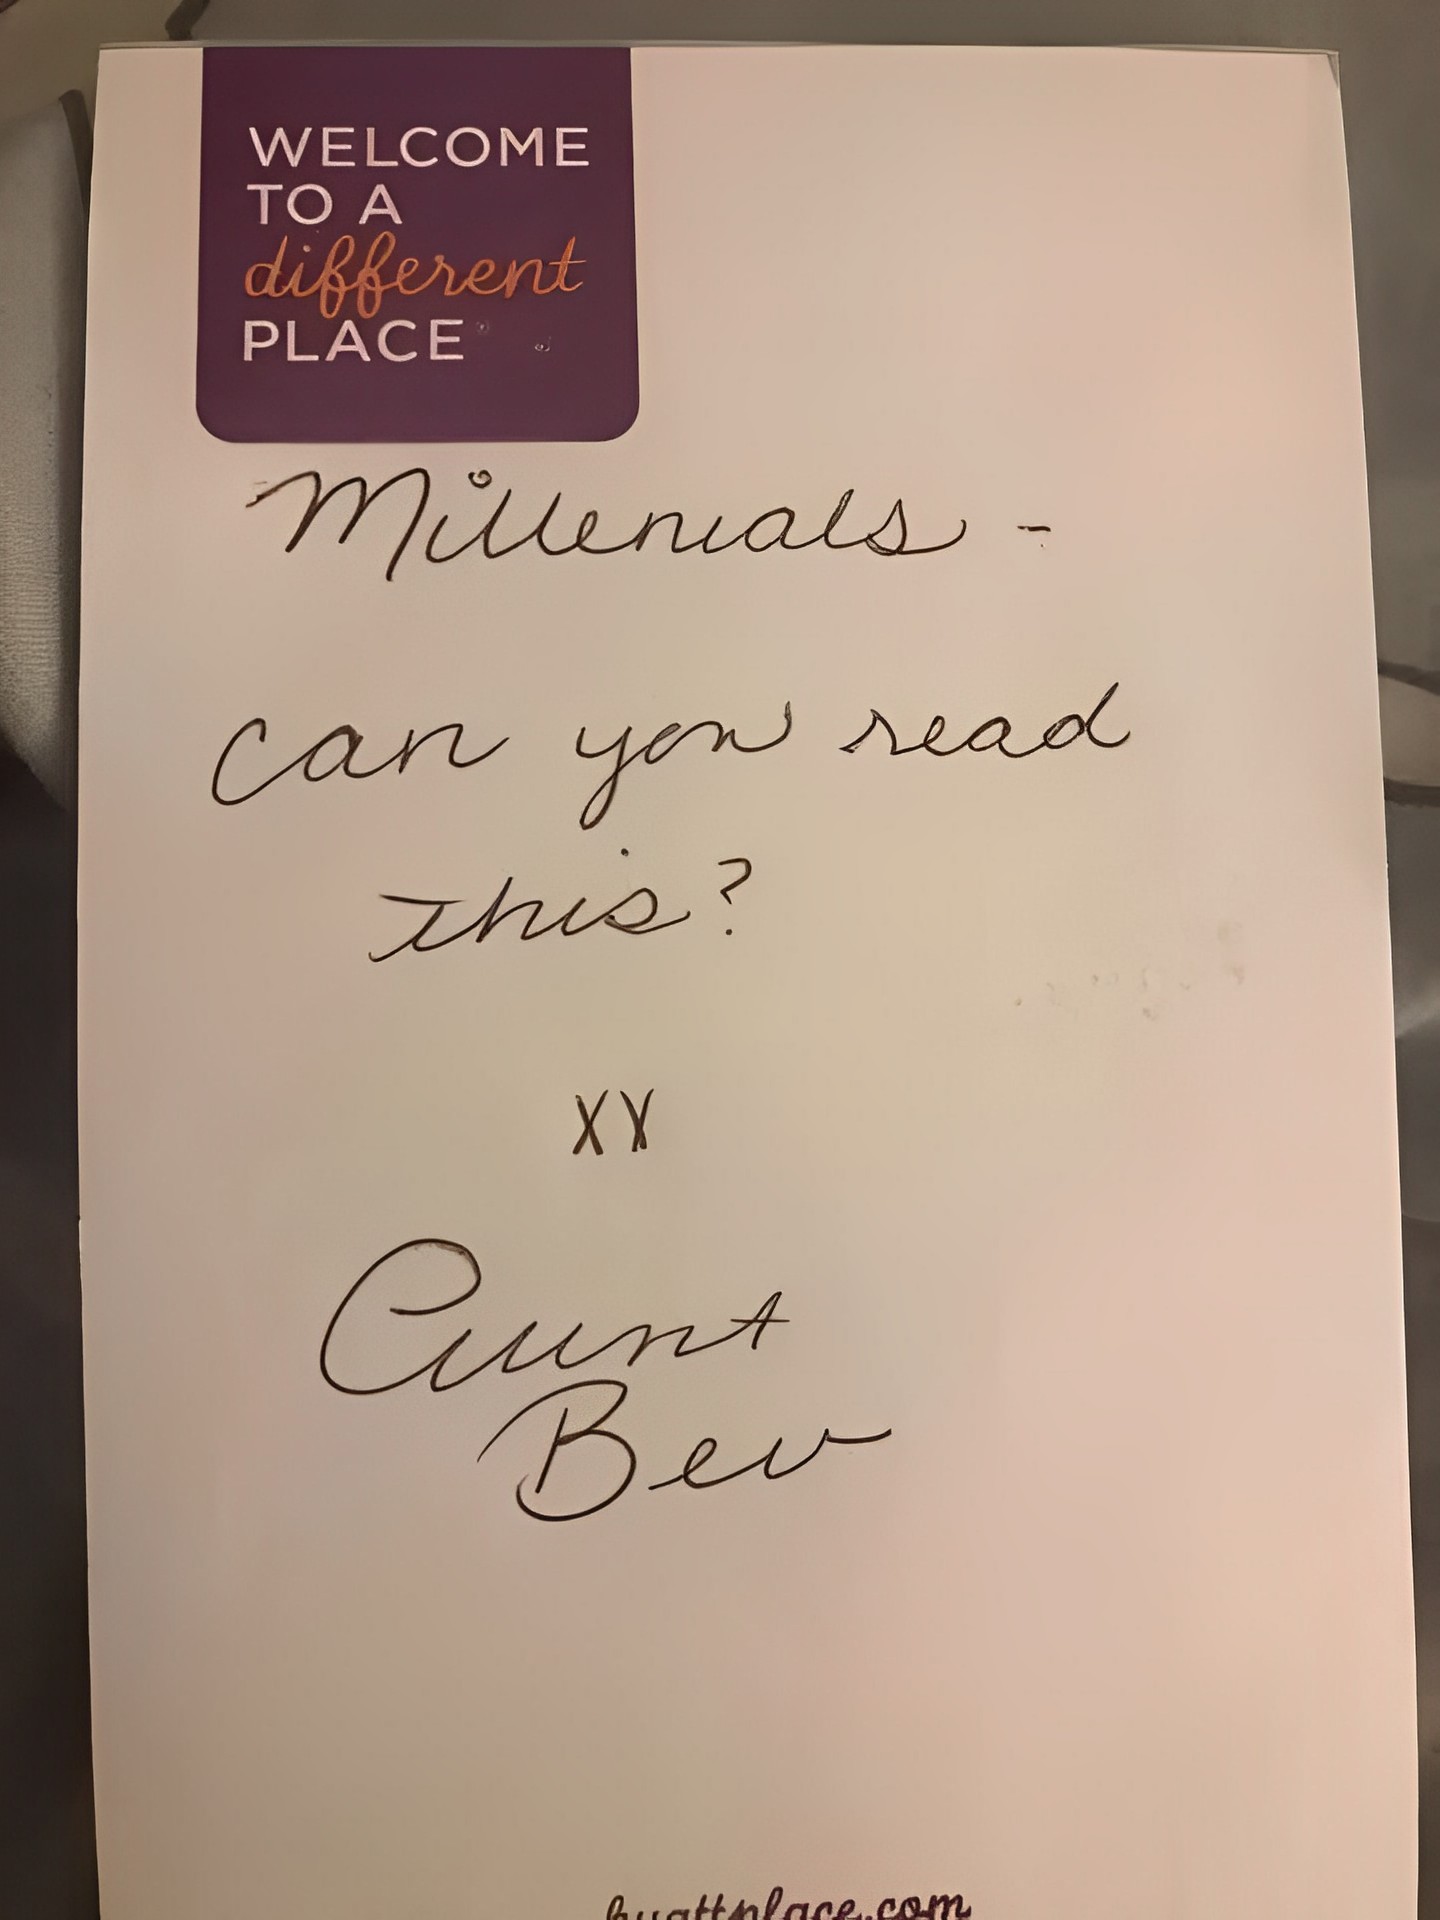 WELCOME
TO A
different
PLACE
Millenials -
can you read
this?
XX
Aunt
Bev
hyattplace.com